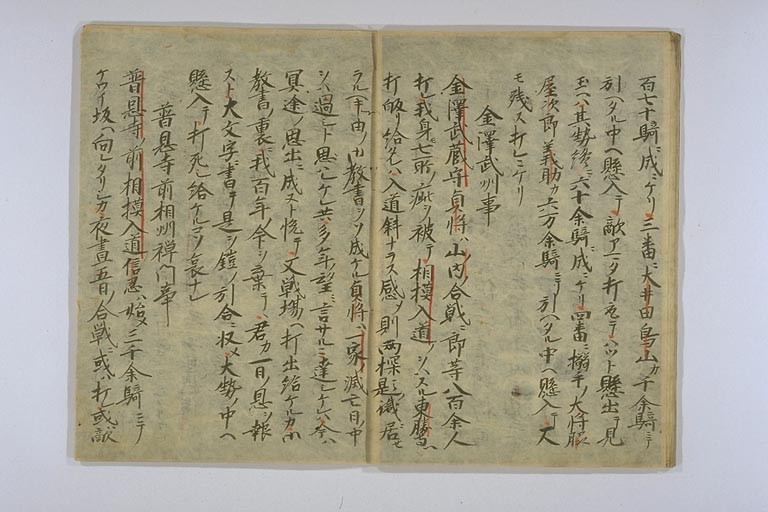 百七十騎ニ成ニケリ三番ニ大井田鳥山カ千余騎ニテ
引ヘタル中ヘ懸入テ敵アマタ打セテハツト懸出テ見
玉ヘハ其勢終ニ六十余騎ニ成ニケリ四番ニ搦手ノ大将脇
屋次郎義助カ六万余騎ニテ引ヘタル中ヘ懸入テ一人
モ残ス打レニケリ
金澤武州事
金澤武蔵守貞将ハ山内ノ合戦ニ郎等八百余人
打レ我身モ七所ノ疵ヲ被テ相模入道ノヲハスル東勝寺ヘ
打皈リ給タレハ入道斜ナラス感ノ則両探題職ニ居セ
ラルヘキ由ノ御教書ヲソ成ケル貞将ハ一家ノ滅亡日ノ中
ヲハ過シト思ハレケレ共多年望ニ言サル達シケレハ今ハ
冥途ノ思出ニ成ヌト悦テ又戦場ヘ打出給ケルカ御
教書ノ裏ニ我百年ノ命ヲ棄テ君カ一日ノ恩ヲ報
スト大文字ニ書テ是ヲ鎧ノ引合ニ収メ大勢ノ中ヘ
懸入テ打死シ給ケルコソ哀ナレ
普恩寺前相州禅門事
普恩寺ノ前相模入道信忍ハ始メ三千余騎ニテ
ケワイ坂ヘ向レタリシカ夜晝五日ノ合戦ニ或ハ打レ或ハ敵